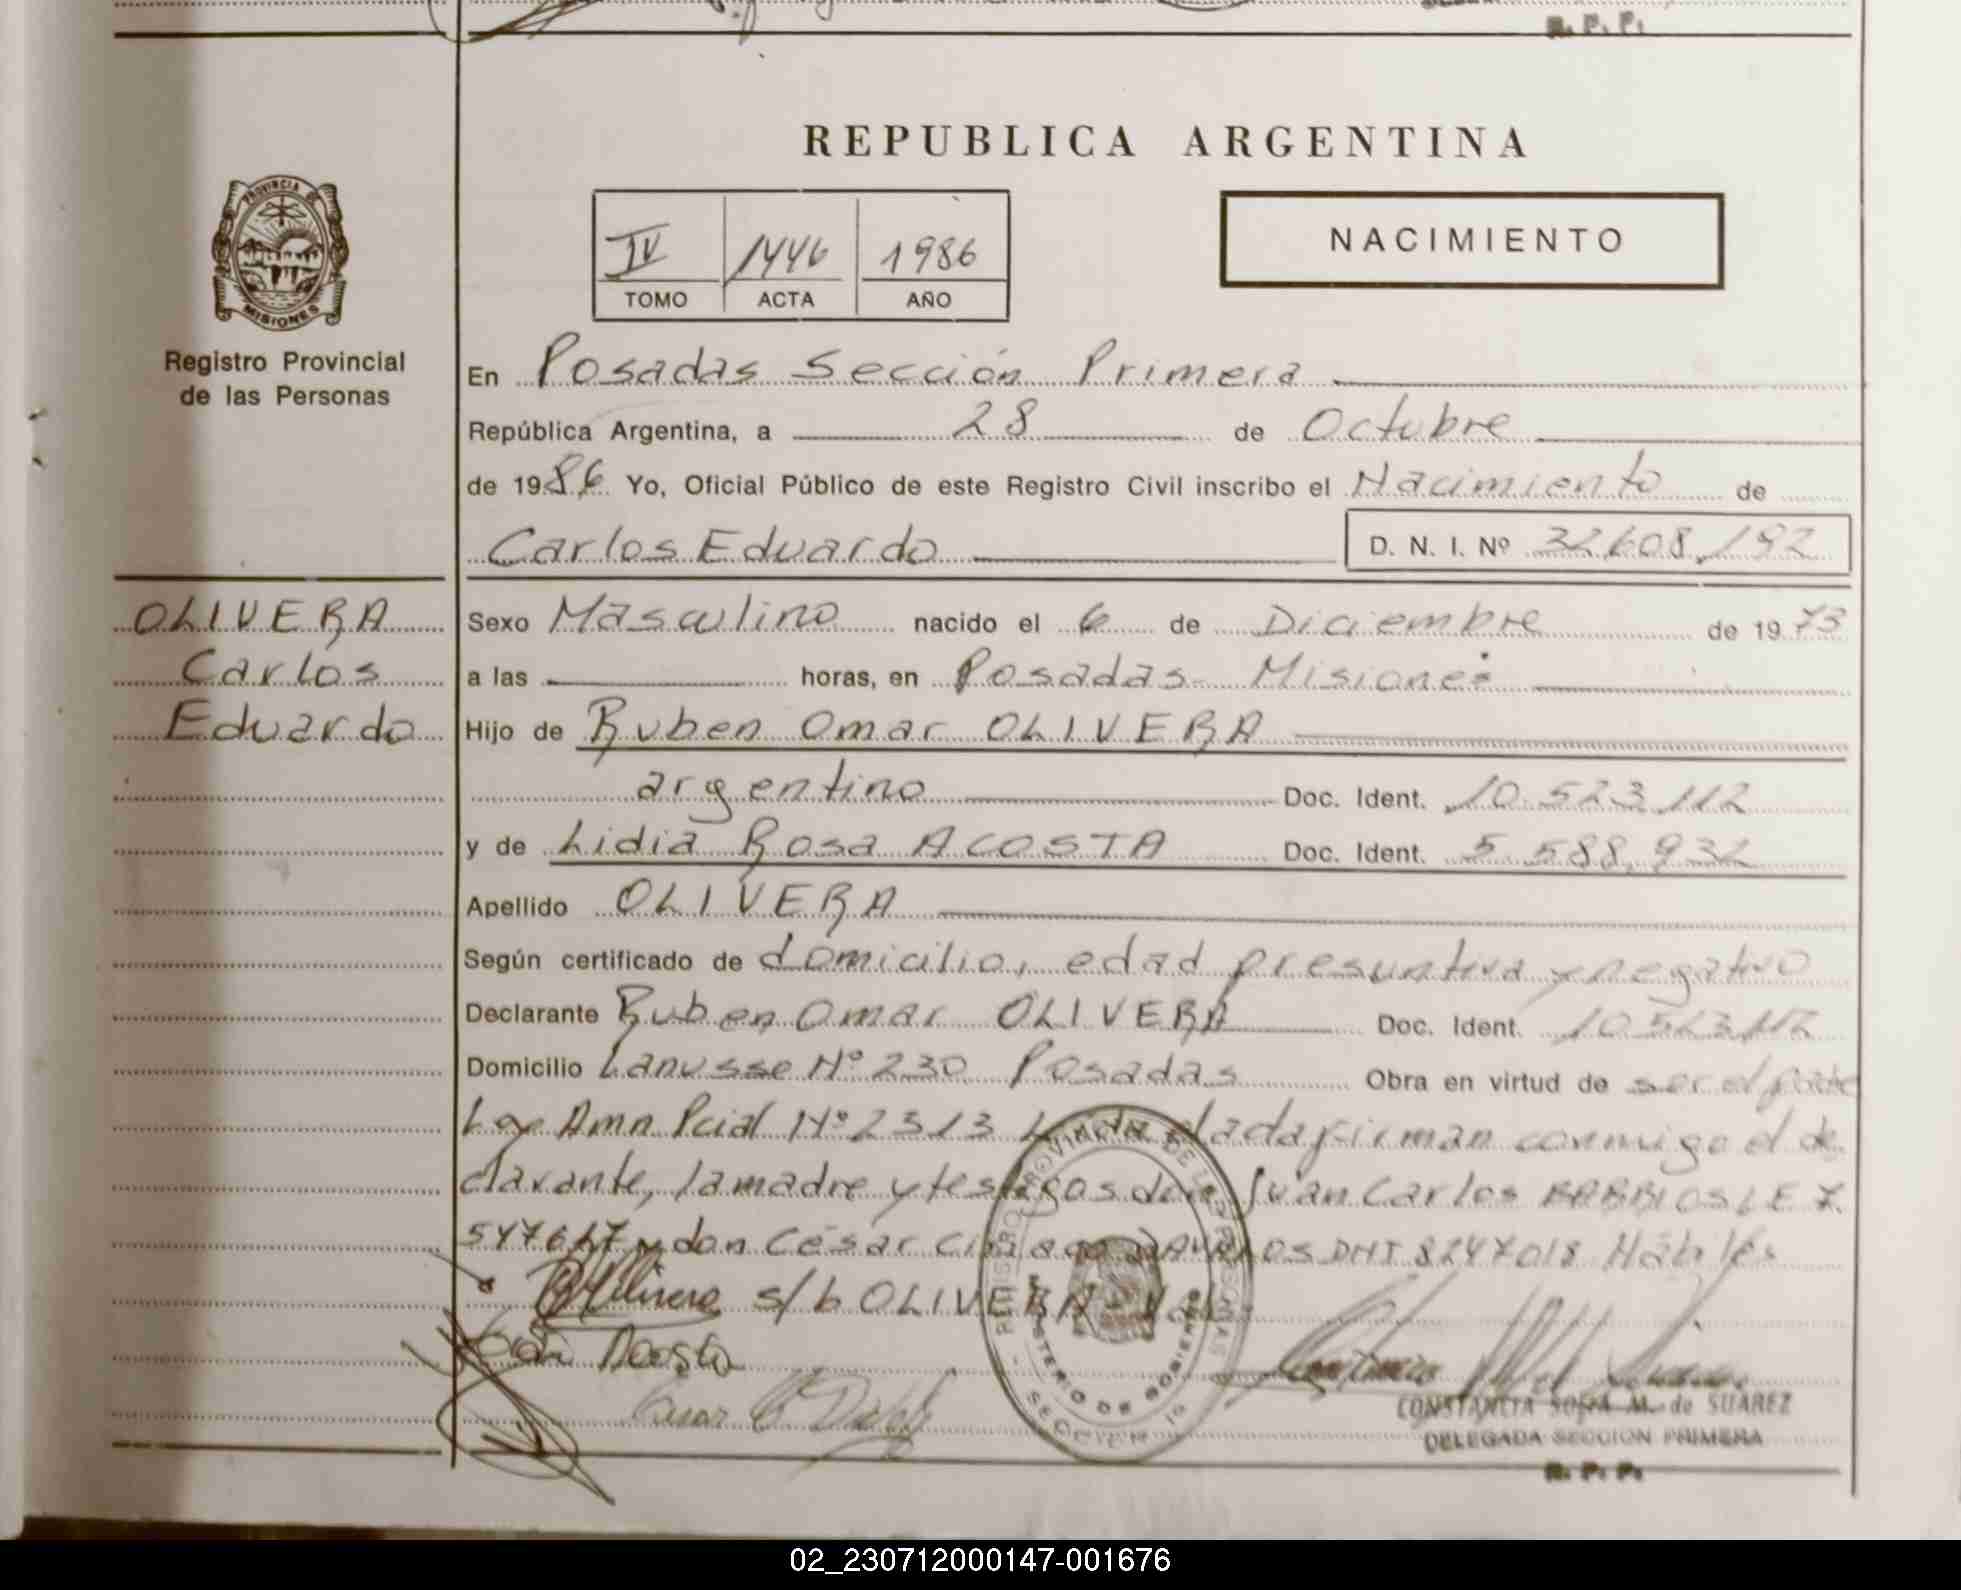 R. P. P.
REPUBLICA ARGENTINA
PROVINCIA DE
MISIONES
Registro Provincial
de las Personas
IV 1446 1986
TOMO ACTA AÑO
NACIMIENTO
En Posadas Sección Primera
República Argentina, a 28 de Octubre
de 1986 Yo, Oficial Público de este Registro Civil inscribo el Nacimiento de
Carlos Eduardo D. N. I. Nº 32.608.192
OLIVERA
Carlos
Eduardo
Sexo Masculino nacido el 6 de Diciembre de 1973
a las horas, en Posadas Misiones
Hijo de Ruben Omar OLIVERA
argentino Doc. Ident. 10.523.112
y de Lidia Rosa ACOSTA Doc. Ident. 5.588.932
Apellido OLIVERA
Según certificado de domicilio, edad presuntiva y negativo
Declarante Ruben Omar OLIVERA Doc. Ident. 10.523.112
Domicilio Lanusse Nº 230 Posadas Obra en virtud de ser el padre
Ley Amn Pcial Nº 2313 Leída firman conmigo el de
clarante, la madre y testigos don Juan Carlos BARRIOS L E 7.
547647 y don César DNI 8247018 Hábiles
s/b OLIVERA - Vale
Acosta
REGISTRO PROVINCIAL DE LAS PERSONAS
MINISTERIO DE GOBIERNO
CONSTANCIA SOFIA M. de SUAREZ
DELEGADA SECCION PRIMERA
R. P. P.
02_230712000147-001676